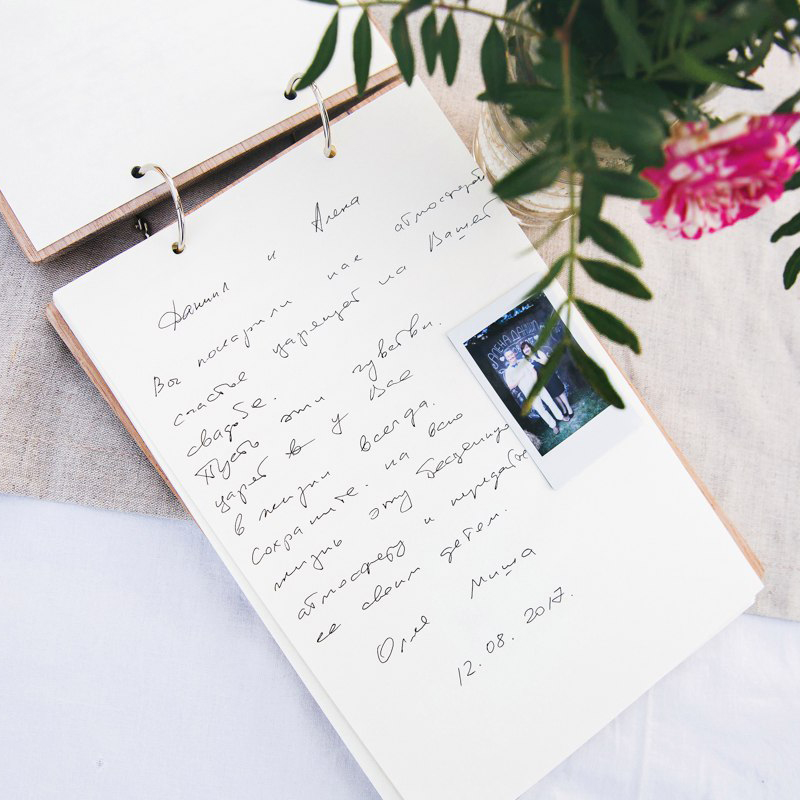 Даниил и Алена
Вы покорили нас атмосферой
счастья царящей на Вашей
свадьбе.
Пусть эти чувства
царят в у Вас
в жизни всегда.
Сохраните на всю
жизнь эту бесценную
атмосферу и передайте
ее своим детям.
Оля Миша
12.08.2017.